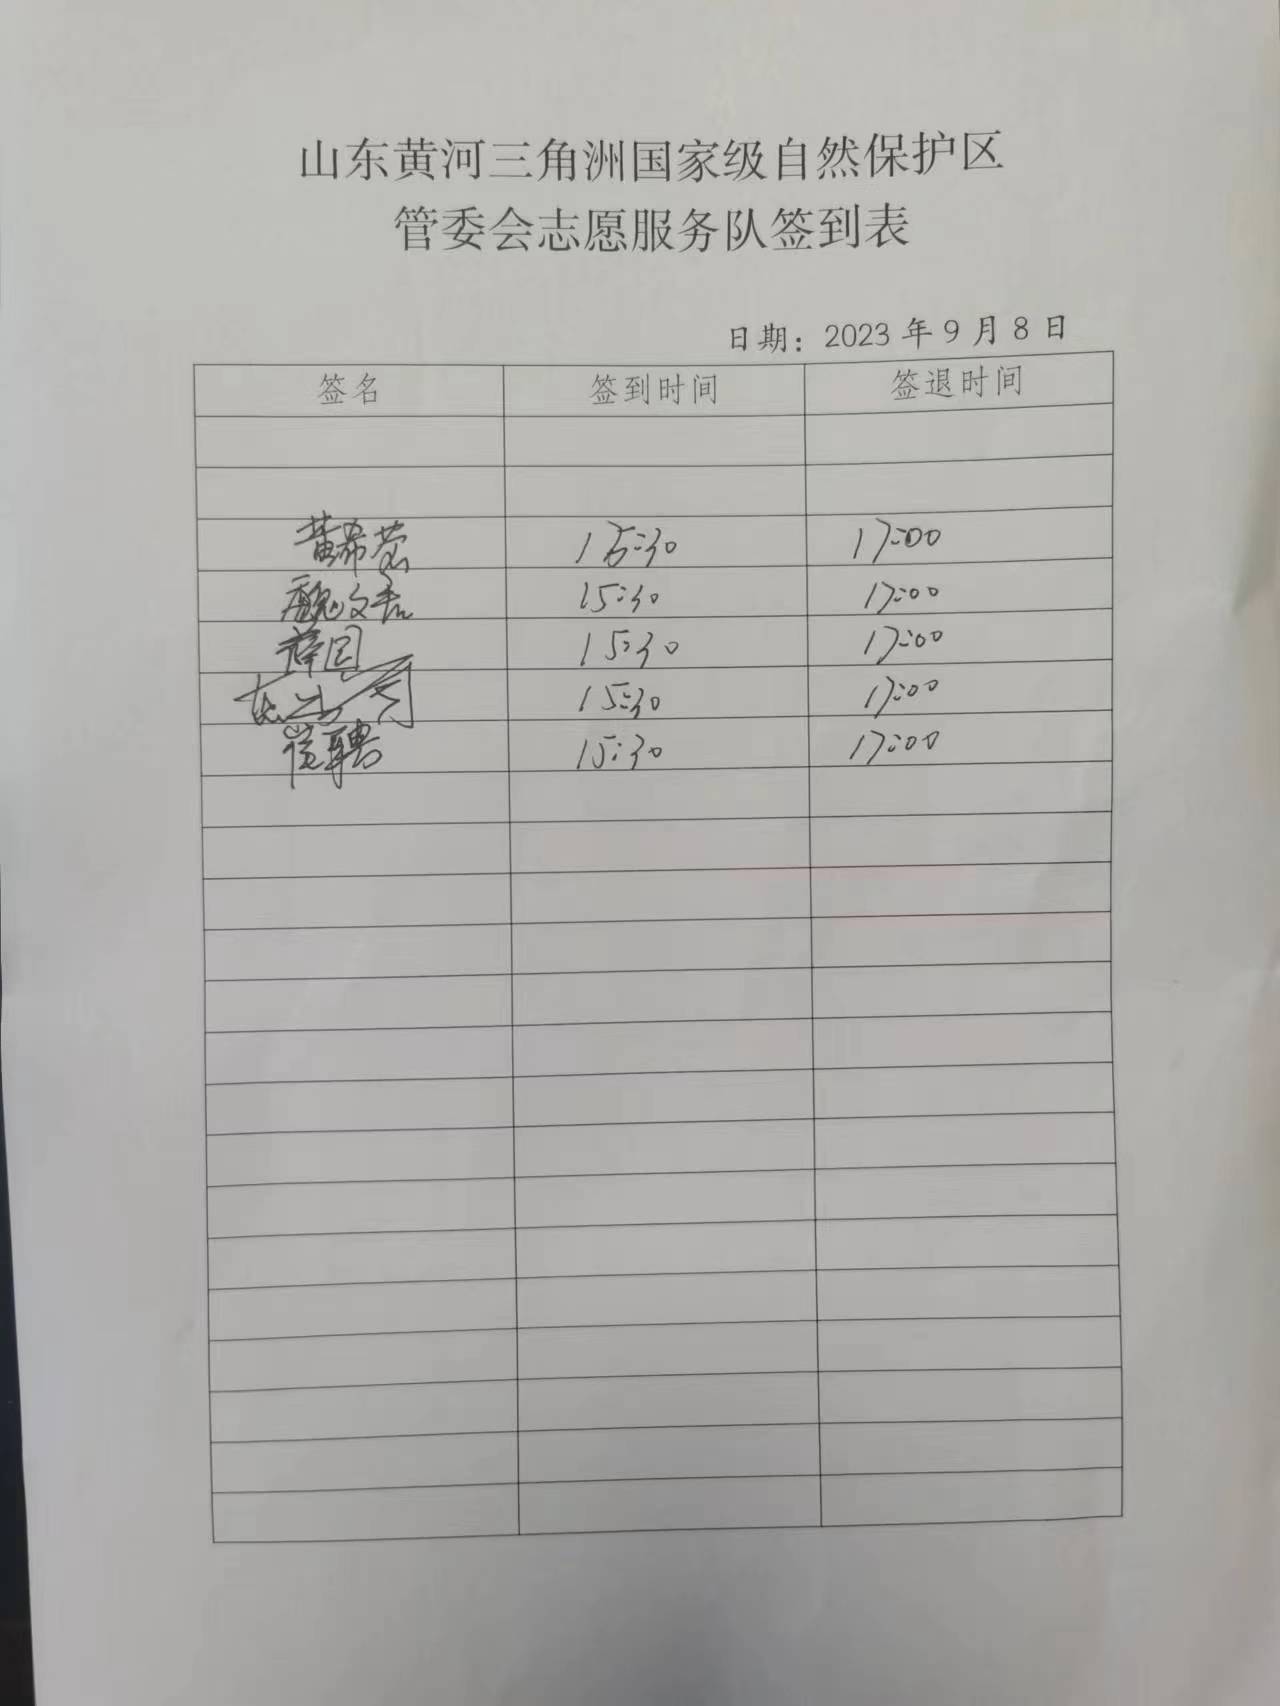 山东黄河三角洲国家级自然保护区
管委会志愿服务队签到表
日期：2023 年 9 月 8 日
签名 签到时间 签退时间
黄希 15:30 17:00
魏文 15:30 17:00
薛园 15:30 17:00
15:30 17:00
崔聘 15:30 17:00